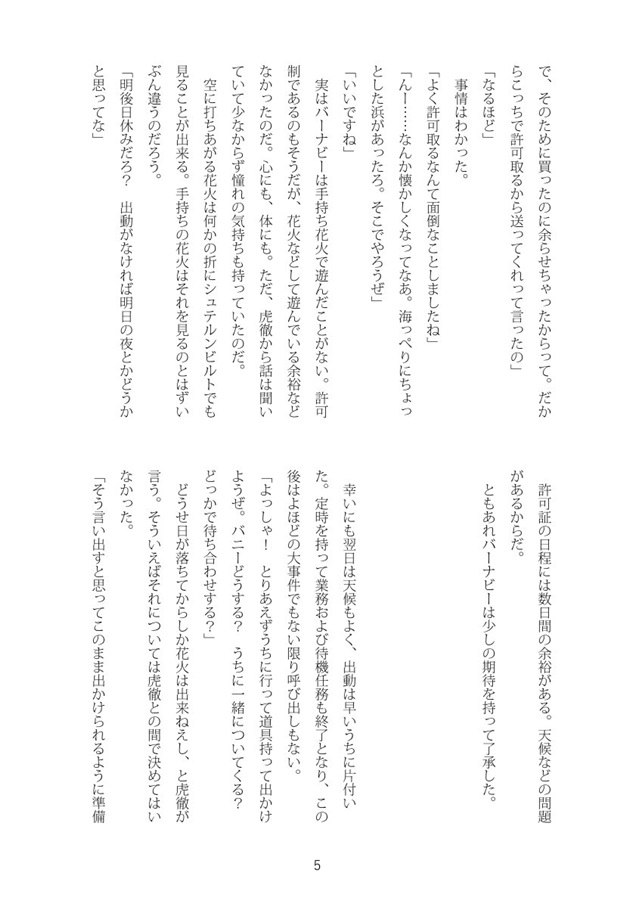 で、そのために買ったのに余らせちゃったからって。だか
らこっちで許可取るから送ってくれって言ったの」
「なるほど」
　事情はわかった。
「よく許可取るなんて面倒なことしましたね」
「んー……なんか懐かしくなってなあ。海っぺりにちょっ
とした浜があったろ。そこでやろうぜ」
「いいですね」
　実はバーナビーは手持ち花火で遊んだことがない。許可
制であるのもそうだが、花火などして遊んでいる余裕など
なかったのだ。心にも、体にも。ただ、虎徹から話は聞い
ていて少なからず憧れの気持ちも持っていたのだ。
　空に打ちあがる花火は何かの折にシュテルンビルトでも
見ることが出来る。手持ちの花火はそれを見るのとはずい
ぶん違うのだろう。
「明後日休みだろ？　出動がなければ明日の夜とかどうか
と思ってな」
　許可証の日程には数日間の余裕がある。天候などの問題
があるからだ。
　ともあれバーナビーは少しの期待を持って了承した。
　幸いにも翌日は天候もよく、出動は早いうちに片付い
た。定時を持って業務および待機任務も終了となり、この
後はよほどの大事件でもない限り呼び出しもない。
「よっしゃ！　とりあえずうちに行って道具持って出かけ
ようぜ。バニーどうする？　うちに一緒についてくる？
どっかで待ち合わせする？」
　どうせ日が落ちてからしか花火は出来ねえし、と虎徹が
言う。そういえばそれについては虎徹との間で決めてはい
なかった。
「そう言い出すと思ってこのまま出かけられるように準備
5